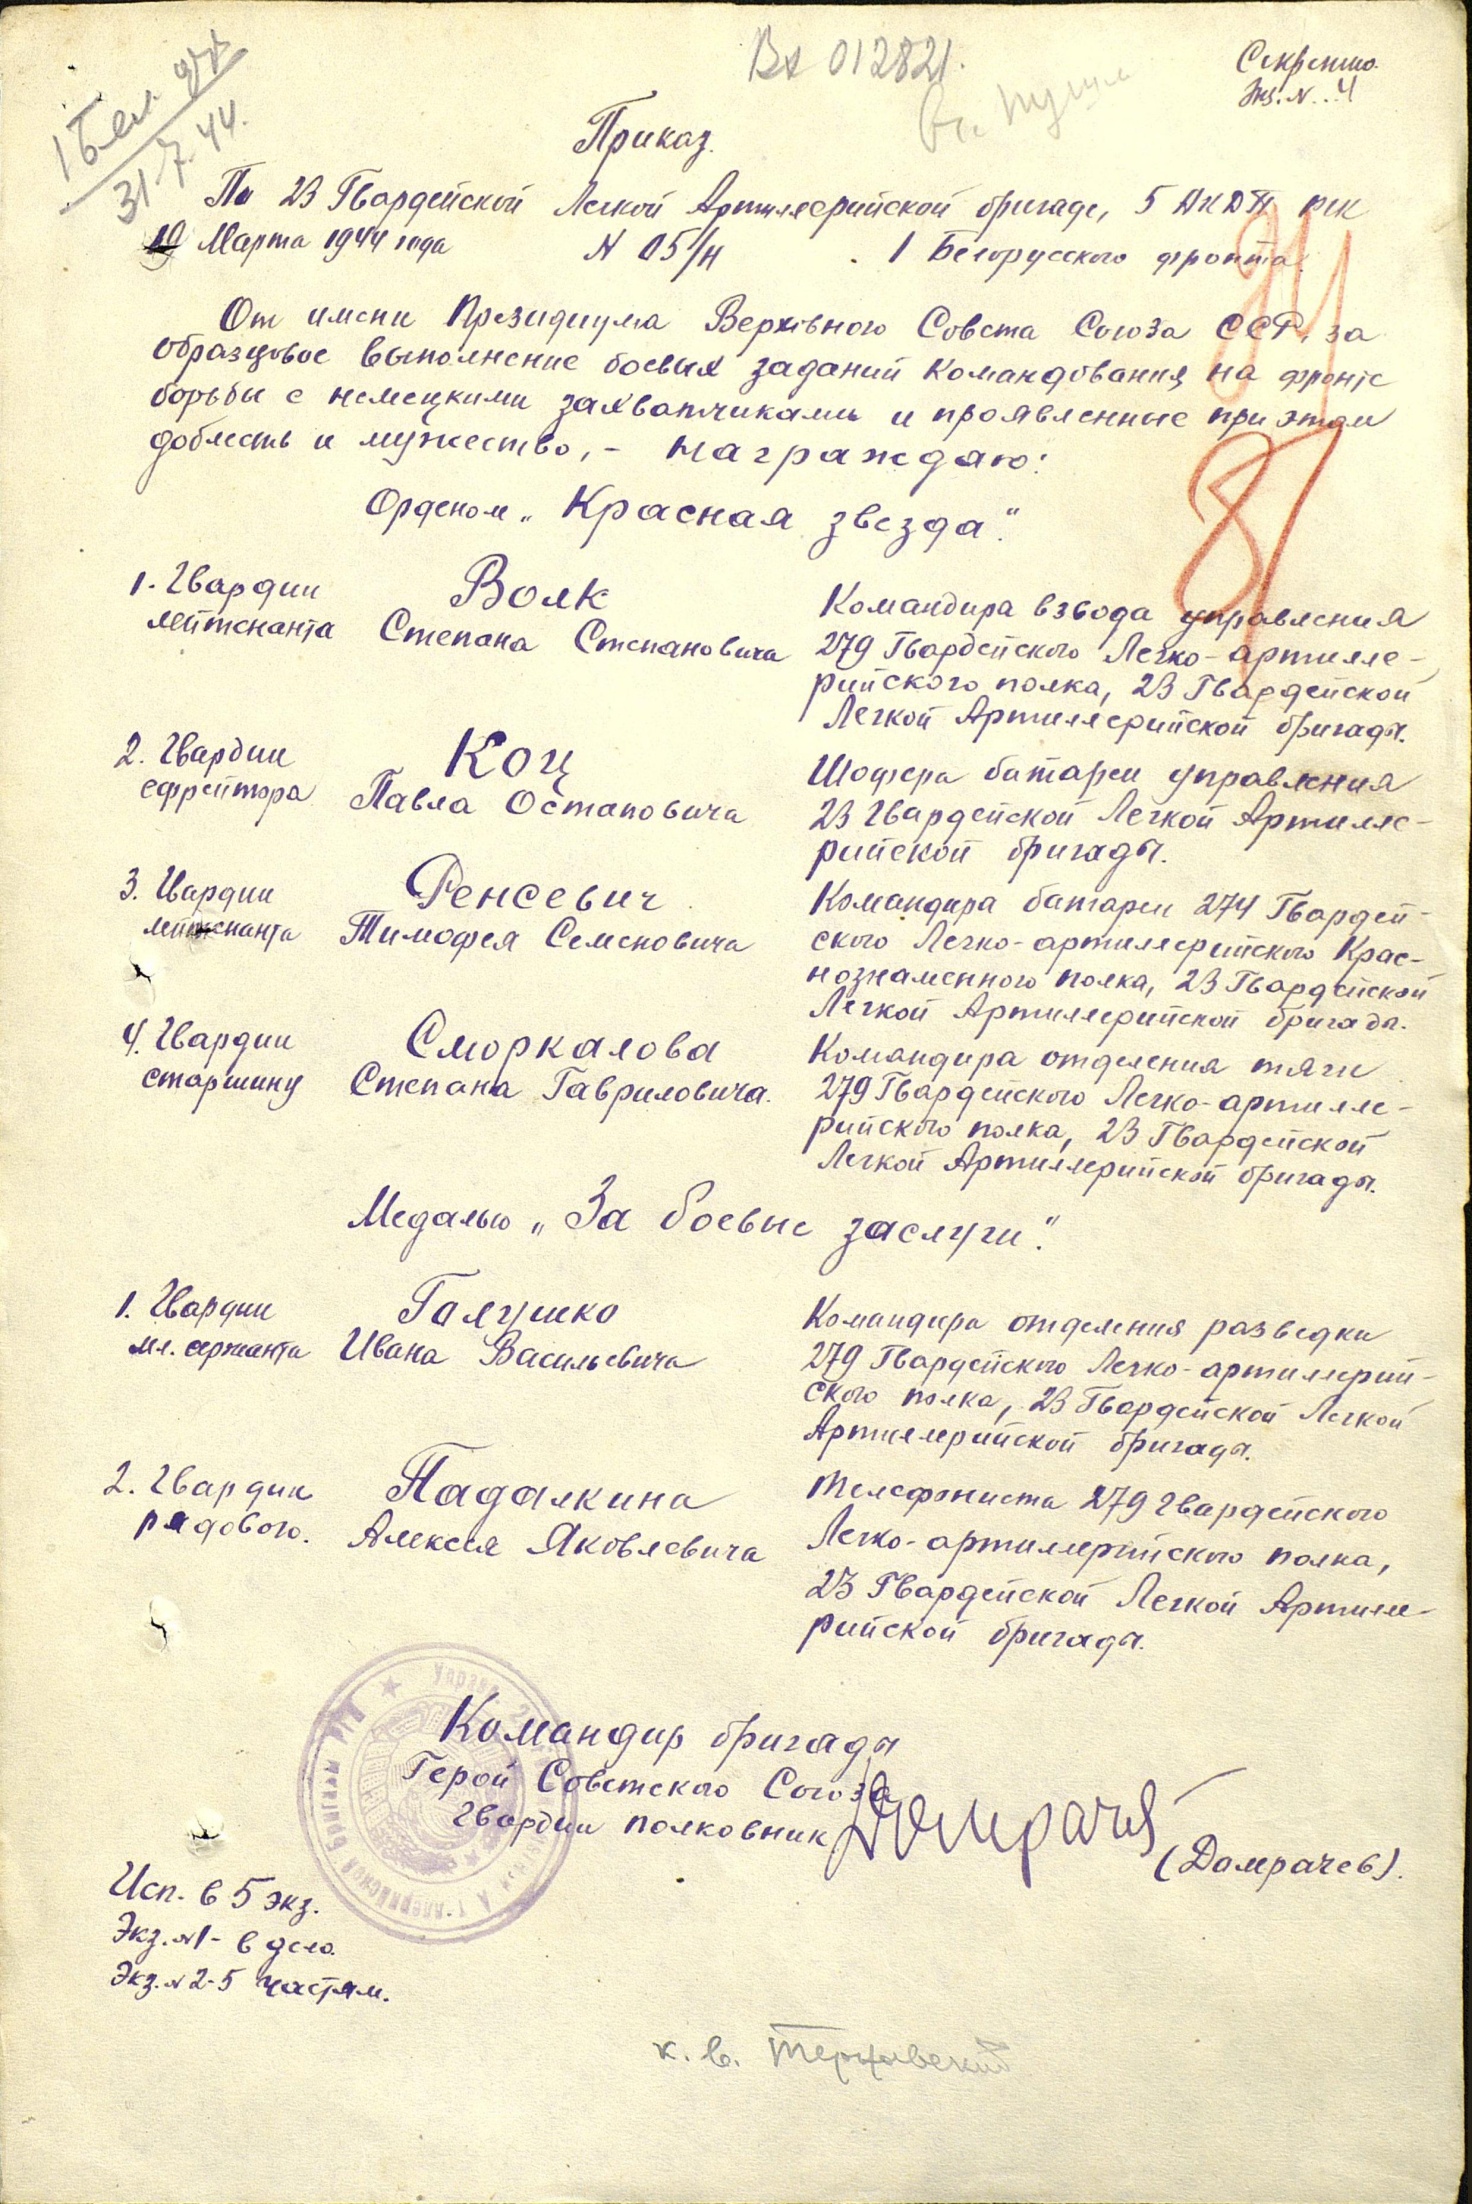 Вх 012821.
Секретно.
Экз. N. 4
1 Бел.
31.7.44.
Приказ.
По 23 Гвардейской Легкой Артиллерийской бригаде, 5 АКДП РГК
19 Марта 1944 года N 05/н 1 Белорусского фронта.
От имени Президиума Верховного Совета Союза ССР, за
образцовое выполнение боевых заданий Командования на фронте
борьбы с немецкими захватчиками и проявленные при этом
доблесть и мужество, - награждаю:
Орденом „Красная звезда".
1. Гвардии Волк Командира взвода управления
лейтенанта Степана Степановича 279 Гвардейского Легко-артилле-
рийского полка, 23 Гвардейской
Легкой Артиллерийской бригады.
2. Гвардии Коц Шофера батареи управления
ефрейтора Павла Остаповича 23 Гвардейской Легкой Артилле-
рийской бригады.
3. Гвардии Ренсевич Командира батареи 274 Гвардей-
лейтенанта Тимофея Семеновича ского Легко-артиллерийского Крас-
нознаменного полка, 23 Гвардейской
Легкой Артиллерийской бригады.
4. Гвардии Сморкалова Командира отделения тяги
старшину Степана Гавриловича. 279 Гвардейского Легко-артилле-
рийского полка, 23 Гвардейской
Легкой Артиллерийской бригады.
Медалью „За боевые заслуги".
1. Гвардии Галушко Командира отделения разведки
мл. сержанта Ивана Васильевича 279 Гвардейского Легко-артиллерий-
ского полка, 23 Гвардейской Легкой
Артиллерийской бригады.
2. Гвардии Падалкина Телефониста 279 Гвардейского
рядового. Алексея Яковлевича Легко-артиллерийского полка,
23 Гвардейской Легкой Артилле-
рийской бригады.
Командир бригады
Герой Советского Союза
Гвардии полковник Домрачев
(Домрачев).
Исп. в 5 экз.
Экз. N1- в дело.
Экз. N 2-5 частям.
к. в.